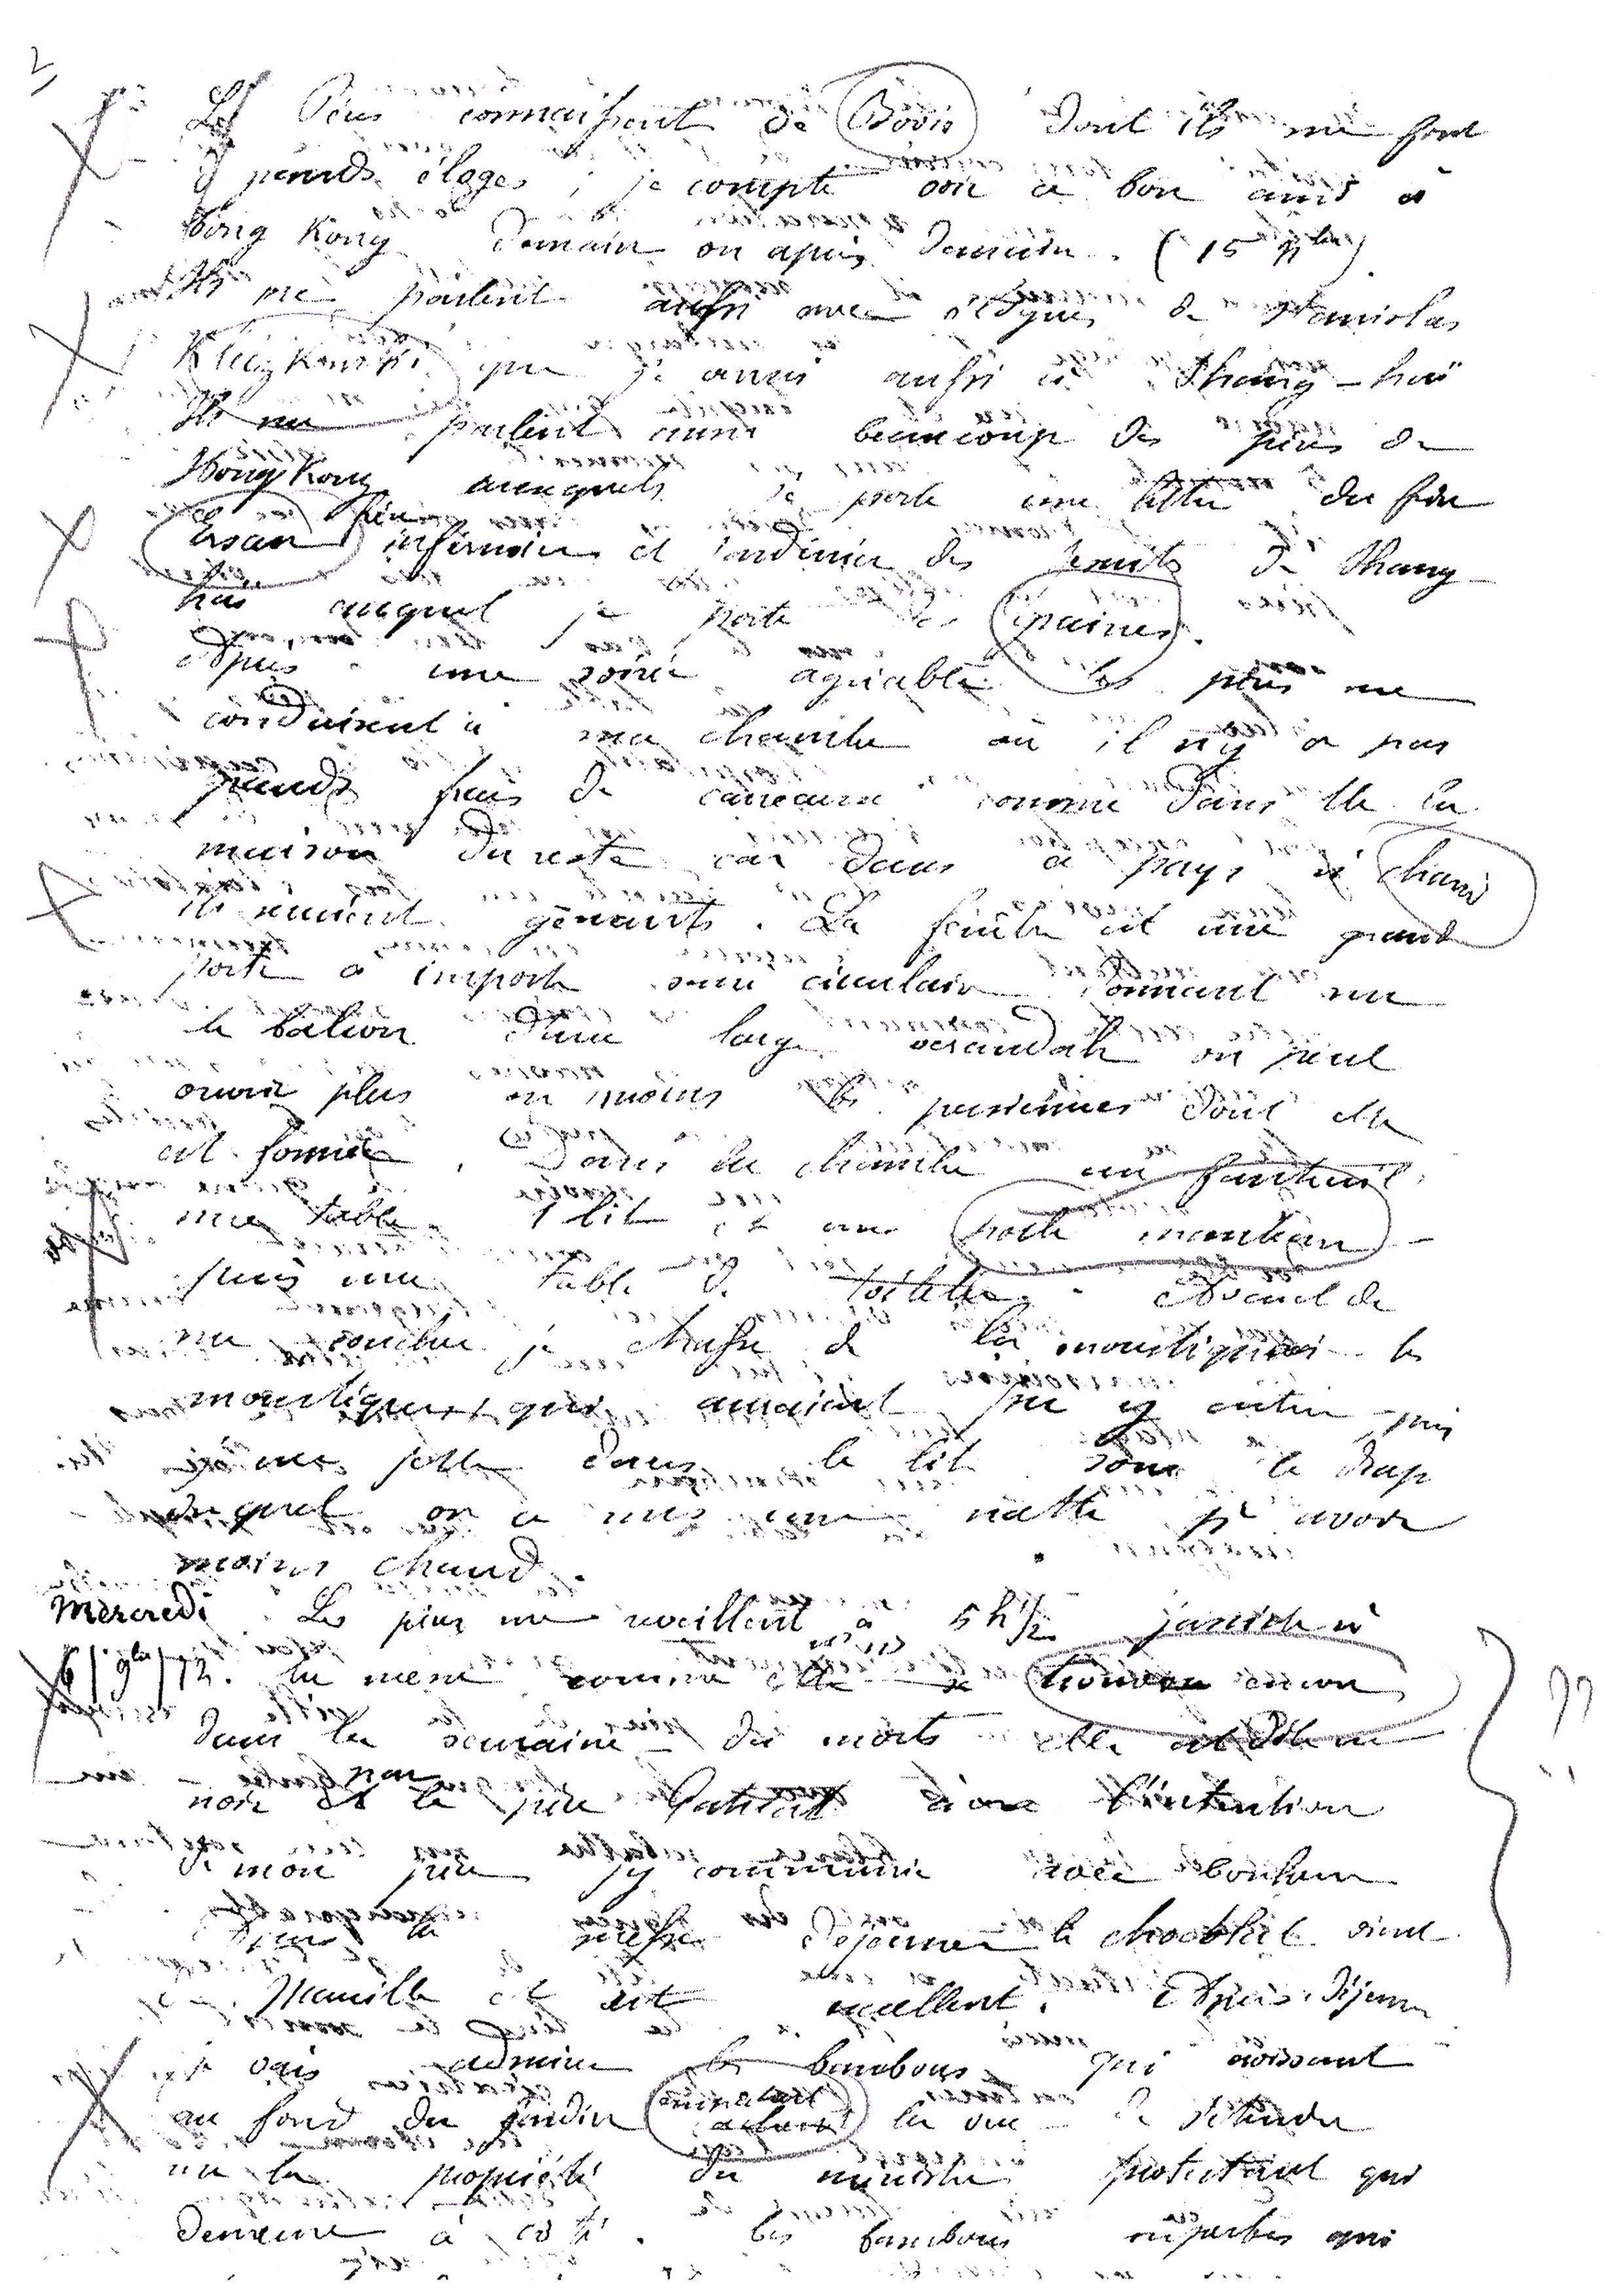 2
Les Pères connaissent de Bovis dont ils me font
grands éloges ; je compte voir ce bon ami à
Hong Kong demain ou après demain. (15 9bre)
Ils me parlent aussi avec éloges de Stanislas
Kleczkowski que j'ai aussi à Shang-haï
Ils me parlent aussi beaucoup des pères de
Hong Kong auxquels je porte une lettre du frère
frère infirmier et jardinier des Jesuites de Shang-
haï auquel je porte des graines.
Après une soirée agréable les pères me
conduisent à ma chambre où il n'y a pas
grands frais de carreaux comme dans tte la
maison du reste car dans ce pays si chaud
ils seraient gênants. La fenêtre est une grande
porte à imposte semi circulaire donnant sur
le balcon d'une large verandah on peut
ouvrir plus ou moins les persiennes dont elle
est formée. Dans la chambre un fauteuil,
une table, 1 lit et un porte manteau -
puis une table de toilette. Avant de
me coucher je chasse de la moustiquaire les
moustiques qui auraient pu y entrer puis
je me jette dans le lit sous le drap
duquel on a mis une natte pr avoir
moins chaud.
Mercredi Les pères me reveillent à 5 h 1/2 j'assiste à
6/9bre/72. la messe comme elle se trouve encore
dans la semaine des morts elle est dite en
noir par le père à l'intention
de mon père j'y communie avec bonheur
Après la messe déjeuner le chocolat vient
de Manille et est excellent. Après déjeuner
je vais admirer les bambous qui croissent
au fond du jardin la vue de s'étendre
sur la propriété du ministre protestant qui
demeure à côté. Les bambous superbes qui
??